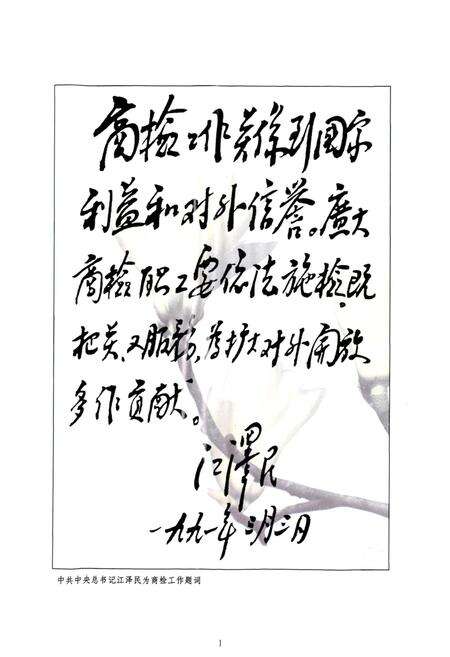 商检工作关系到国家
利益和对外信誉。广大
商检职工要依法施检,既
把关,又服务,为扩大对外开放
多作贡献。
江泽民
一九九一年三月三日
中共中央总书记江泽民为商检工作题词
1